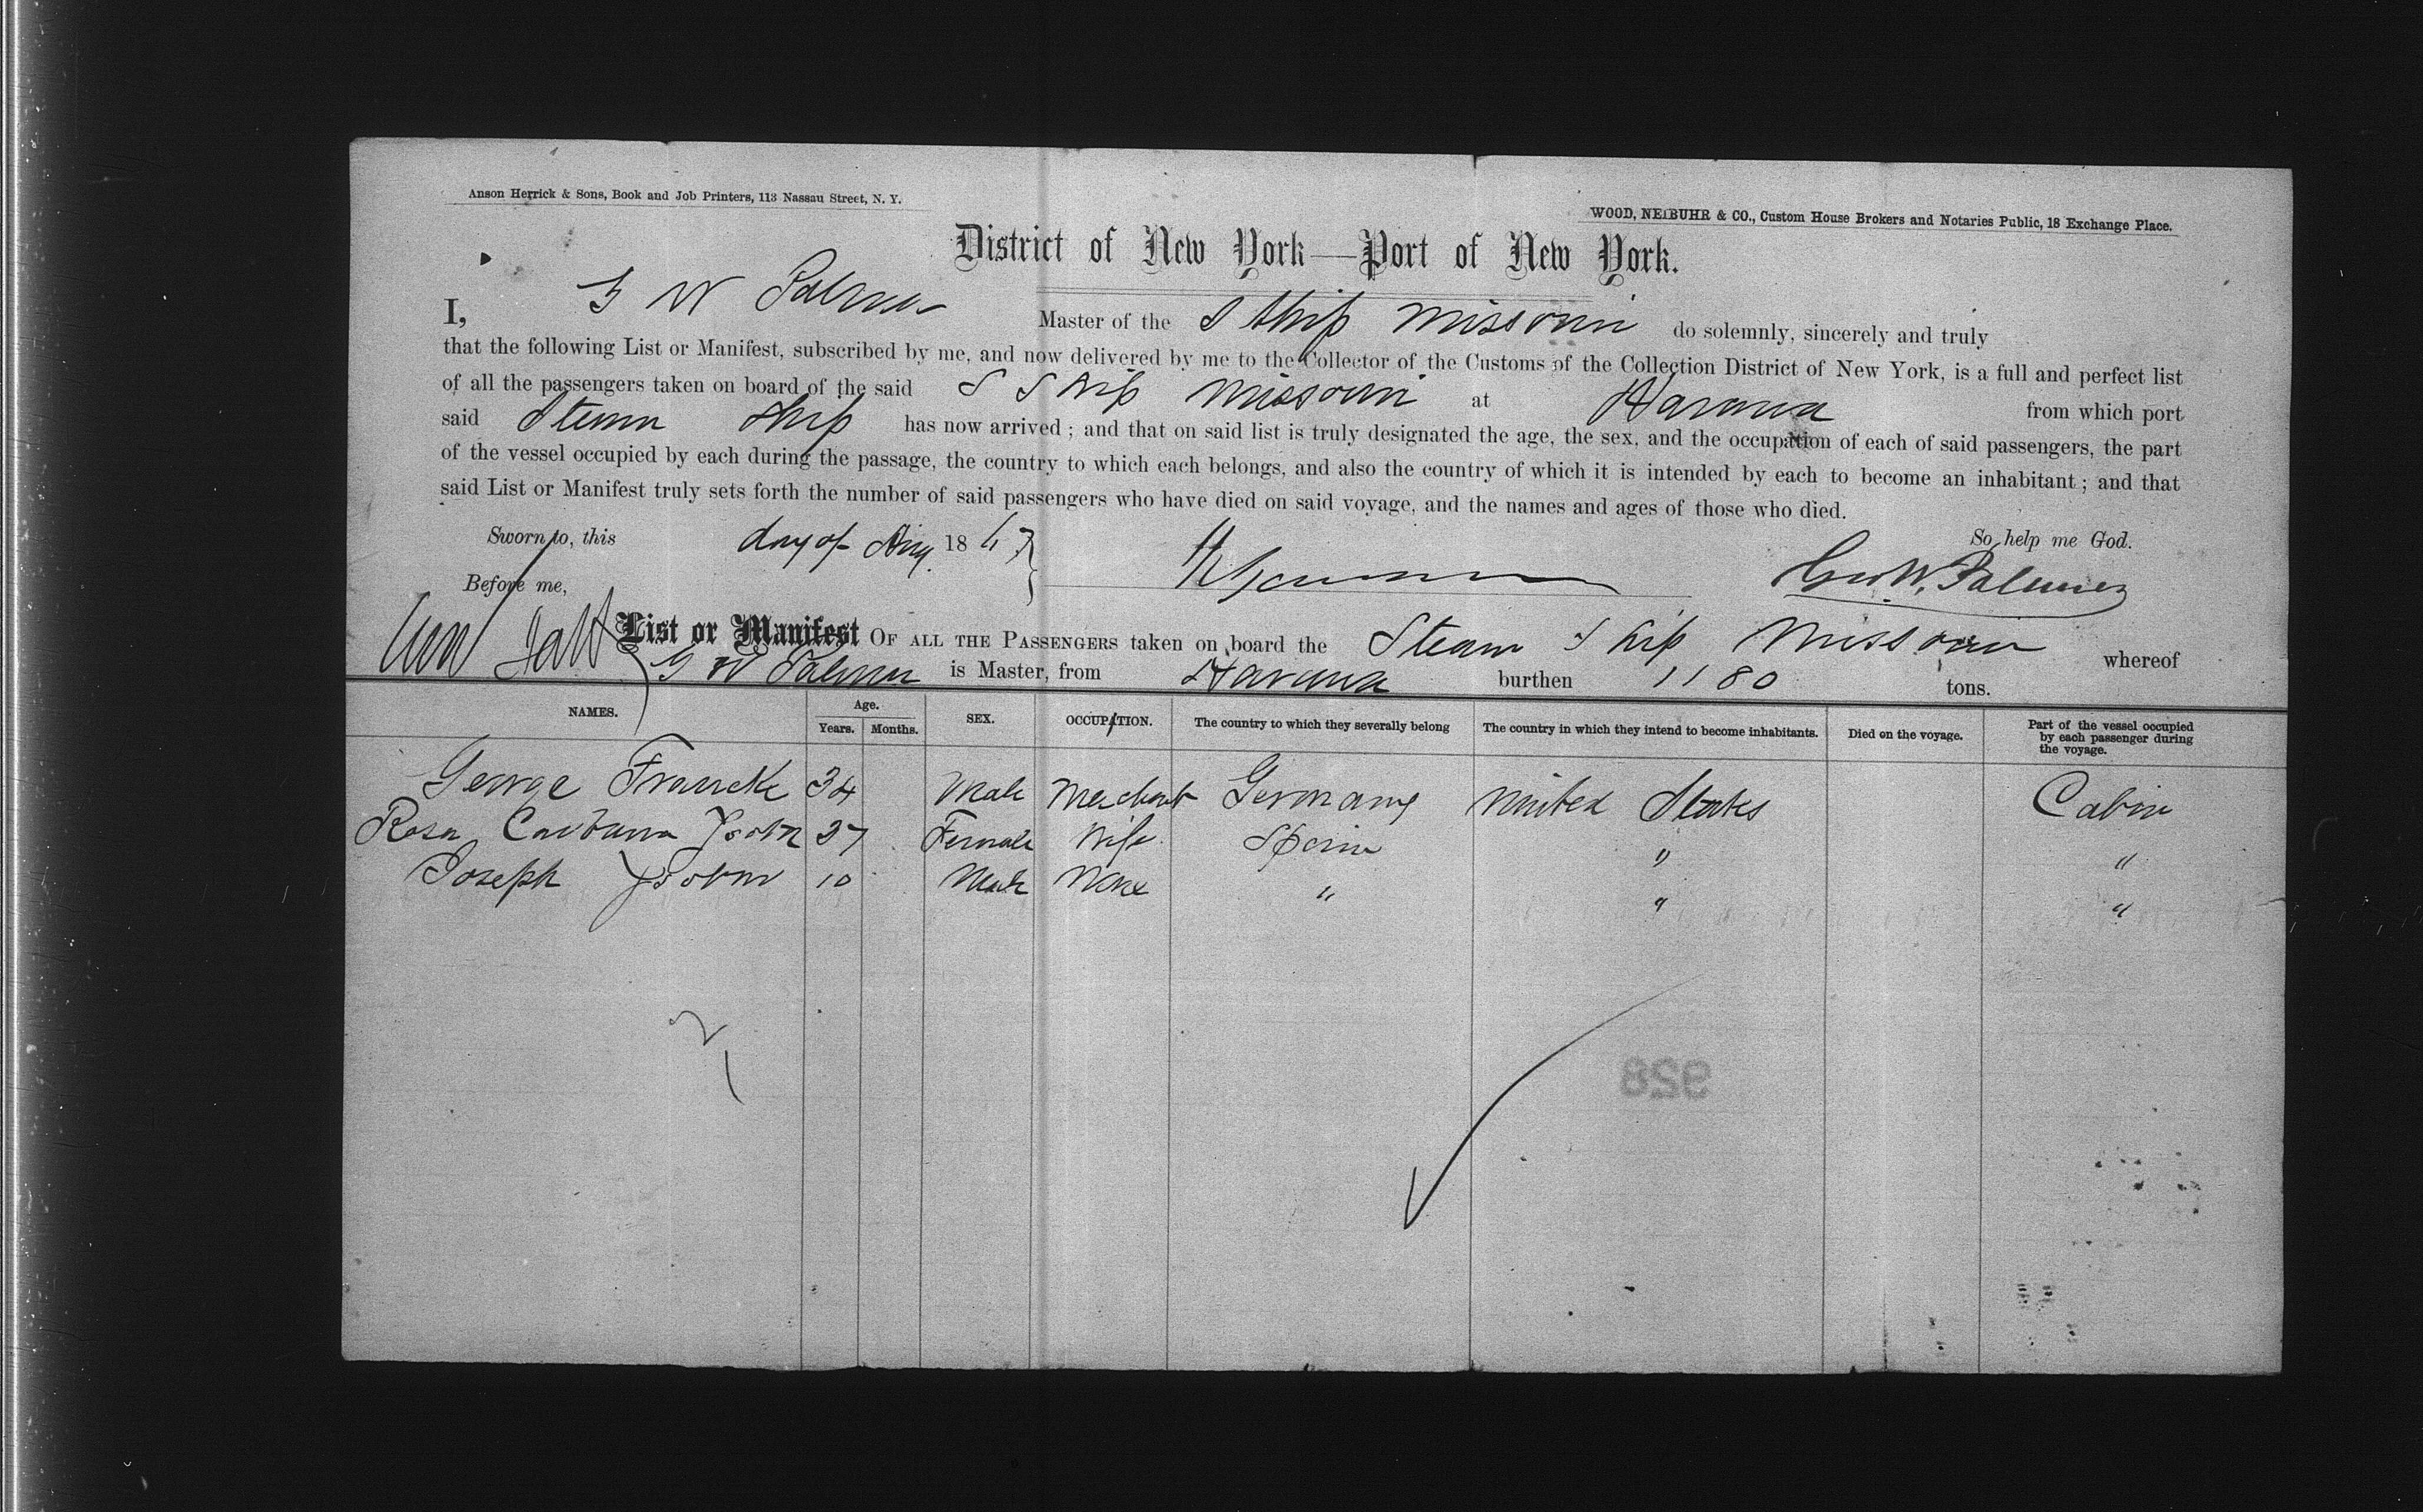 Anson Herrick & Sons, Book and Job Printers, 113 Nassau Street, N. Y.
WOOD, NEIBUHR & CO., Custom House Brokers and Notaries Public, 18 Exchange Place.
District of New York—Port of New York.
I, G W Palmer Master of the S Ship Missouri do solemnly, sincerely and truly
that the following List or Manifest, subscribed by me, and now delivered by me to the Collector of the Customs of the Collection District of New York, is a full and perfect list
of all the passengers taken on board of the said S Ship Missouri at Havana from which port
said Steam Ship has now arrived; and that on said list is truly designated the age, the sex, and the occupation of each of said passengers, the part
of the vessel occupied by each during the passage, the country to which each belongs, and also the country of which it is intended by each to become an inhabitant; and that
said List or Manifest truly sets forth the number of said passengers who have died on said voyage, and the names and ages of those who died.
Sworn to, this day of Aug. 1867 So help me God.
Before me, Geo W. Palmer
List or Manifest OF ALL THE PASSENGERS taken on board the Steam Ship Missouri whereof
G W Palmer is Master, from Havana burthen 1180 tons.
NAMES. Age. Years. Months. SEX. OCCUPATION. The country to which they severally belong The country in which they intend to become inhabitants. Died on the voyage. Part of the vessel occupied by each passenger during the voyage.
George Francke 34 Male Merchant Germany United States Cabin
Rosa 27 Female Wife Spain " "
Joseph 10 Male None " " "
928